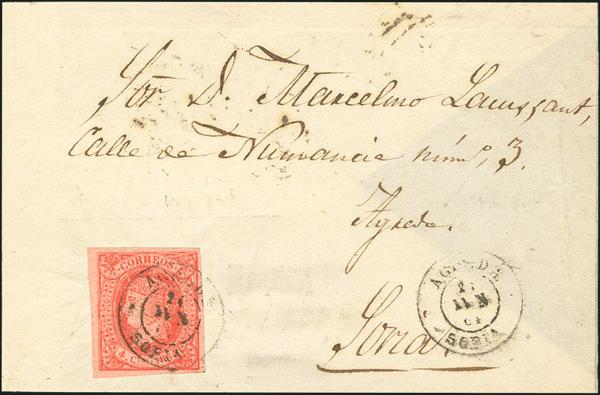 Sör D. Marcelino Laussant,
Calle de Numancia núm. 3.
Agreda.
Soria
CORREOS
AGREDA
SORIA
AGREDA
SORIA